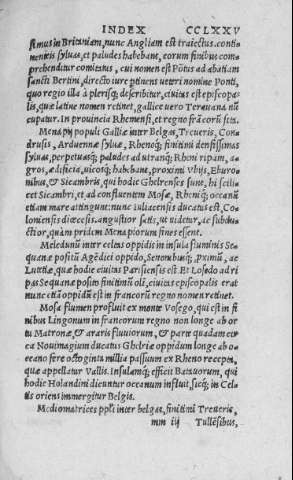 INDEX CCLXXV
simus in Britaniam, nunc Angliam est traiectus. conti
menteis syluas, et paludes habebant, eorum finibus com
prehenditur comitatus, cui nomen est Pōtus ad abatiam
sancti Bertini, directo iure ptinens ueteri nomine Ponti,
quo regio illa à plerisq; describitur, ciuitas est episcopa-
lis, quæ latine nomen retinet, gallice uero Teruana nū
cupatur. In prouincia Rhemensi, et regno frācorū sita.
Menapij populi Galliæ inter Belgas, Treueris, Con
drusis, Arduennæ syluæ, Rhenoq; finitimi densissimas
syluas, perpetuasq; paludes ad utranq; Rheni ripam, a-
gros, ædificia, uicosq; habebant, proximi Vbijs, Eburo-
nibus, & Sicambris, qui hodie Ghelrenses sunt, hi scili-
cet Sicambri, et ad confluentem Mosæ, Rheniq; oceanū
etiam mare attingunt: nunc iuliacensis ducatus est, Co-
loniensis diœcesis. angustior satis, ut uidetur, ac subdu-
ctior, quàm pridem Menapiorum fines essent.
Melodunū inter celeis oppidis in insula fluminis Se-
quanæ positū Agēdici oppido, Senonibusq; pximū, ac
Lutetiæ, quæ hodie ciuitas Parisiensis est. Et Losedo ad ri
pas Sequanæ possim finitimū oli, ciuitas episcopalis erat
nunc etiā oppidū est in francorū regno nomen retinet.
Mosa flumen profluit ex monte Vosego, qui est in fi
nibus Lingonum in francorum regno non longe ab or
tu Matronæ, & araris fluuiorum, & parte quadam cir
ca Nouimagium ducatus Ghelriæ oppidum longe ab o-
ceano fere octoginta millia passuum ex Rheno recepta,
quæ appellatur Vallis. Insulamq; efficit Batauorum, qui
hodie Holandini dicuntur oceanum influit, sicq; in Cel-
tis oriens immergitur Belgis.
Mediomatrices ppli inter belgas, finitimi Treueris,
mm iij Tullēsibus,